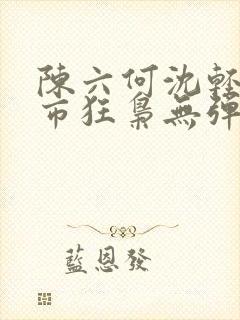 陳六何沈輕
市狂梟無彈
藍恩發